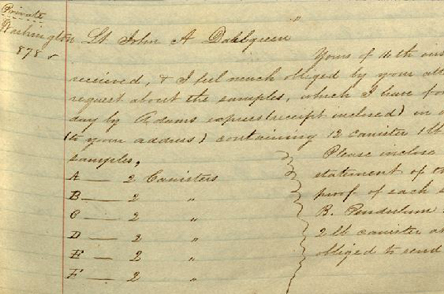 Private
Washington Lt John A Dahlgreen
878
Yours of 11th ins
received, & I feel much obliged by your att
request about the samples, which I have for
day by Adams express (receipt inclosed) in
(to your address) containing 12 canister 1 lb
samples,
A — 2 Canisters
B — 2 "
C — 2 "
D — 2 "
E — 2 "
F — 2 "
Please inclose
statement of
proof of each
B. Pendulum
2 lb canister as
obliged to send